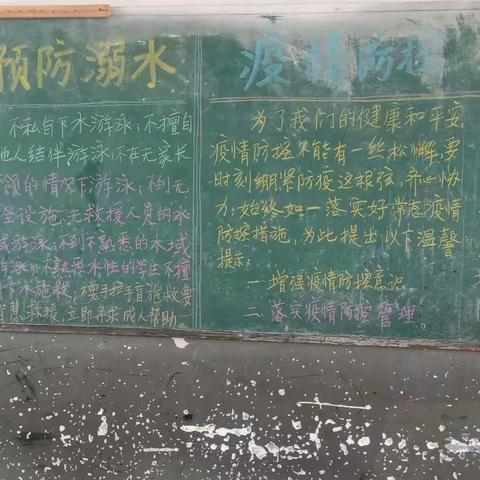 预防溺水
不私自下水游泳;不擅自
他人结伴游泳;不在无家长
领的情况下游泳;不到无
全设施、无救援人员的水
域游泳;不到不熟悉的水域
游泳;不熟悉水性的学生不擅
下水施救;不要手拉手盲施救要
智慧救援,立即寻求成人帮助。
疫情防控
为了我们的健康和平安
疫情防控不能有一丝松懈,要
时刻绷紧防疫这根弦,齐心协
力,始终如一落实好常态疫情
防控措施,为此提出以下温馨
提示:
一.增强疫情防控意识。
二.落实疫情防控管理。